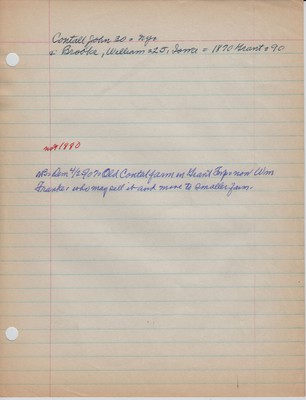 Contall John 20 = Ngo
s: Brooke, William = 25; Some = 1870 Grant = 90
1990
NB: Dem 4/2 90 7: Old Contal farm in Grant Twp = now Wm
who may sell it and move to smaller farm.